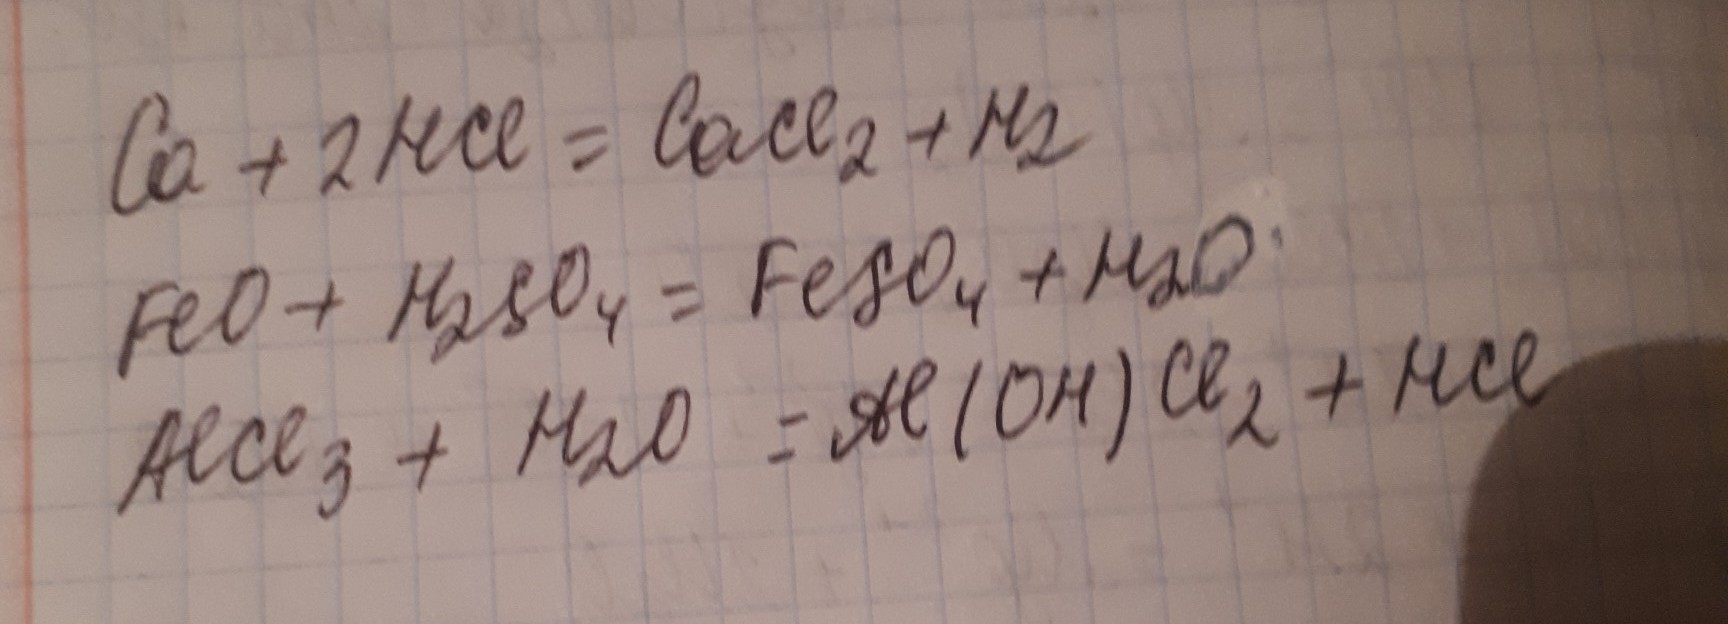 Ca + 2HCl = CaCl₂ + H₂
FeO + H₂SO₄ = FeSO₄ + H₂O
AlCl₃ + H₂O = Al(OH)Cl₂ + HCl